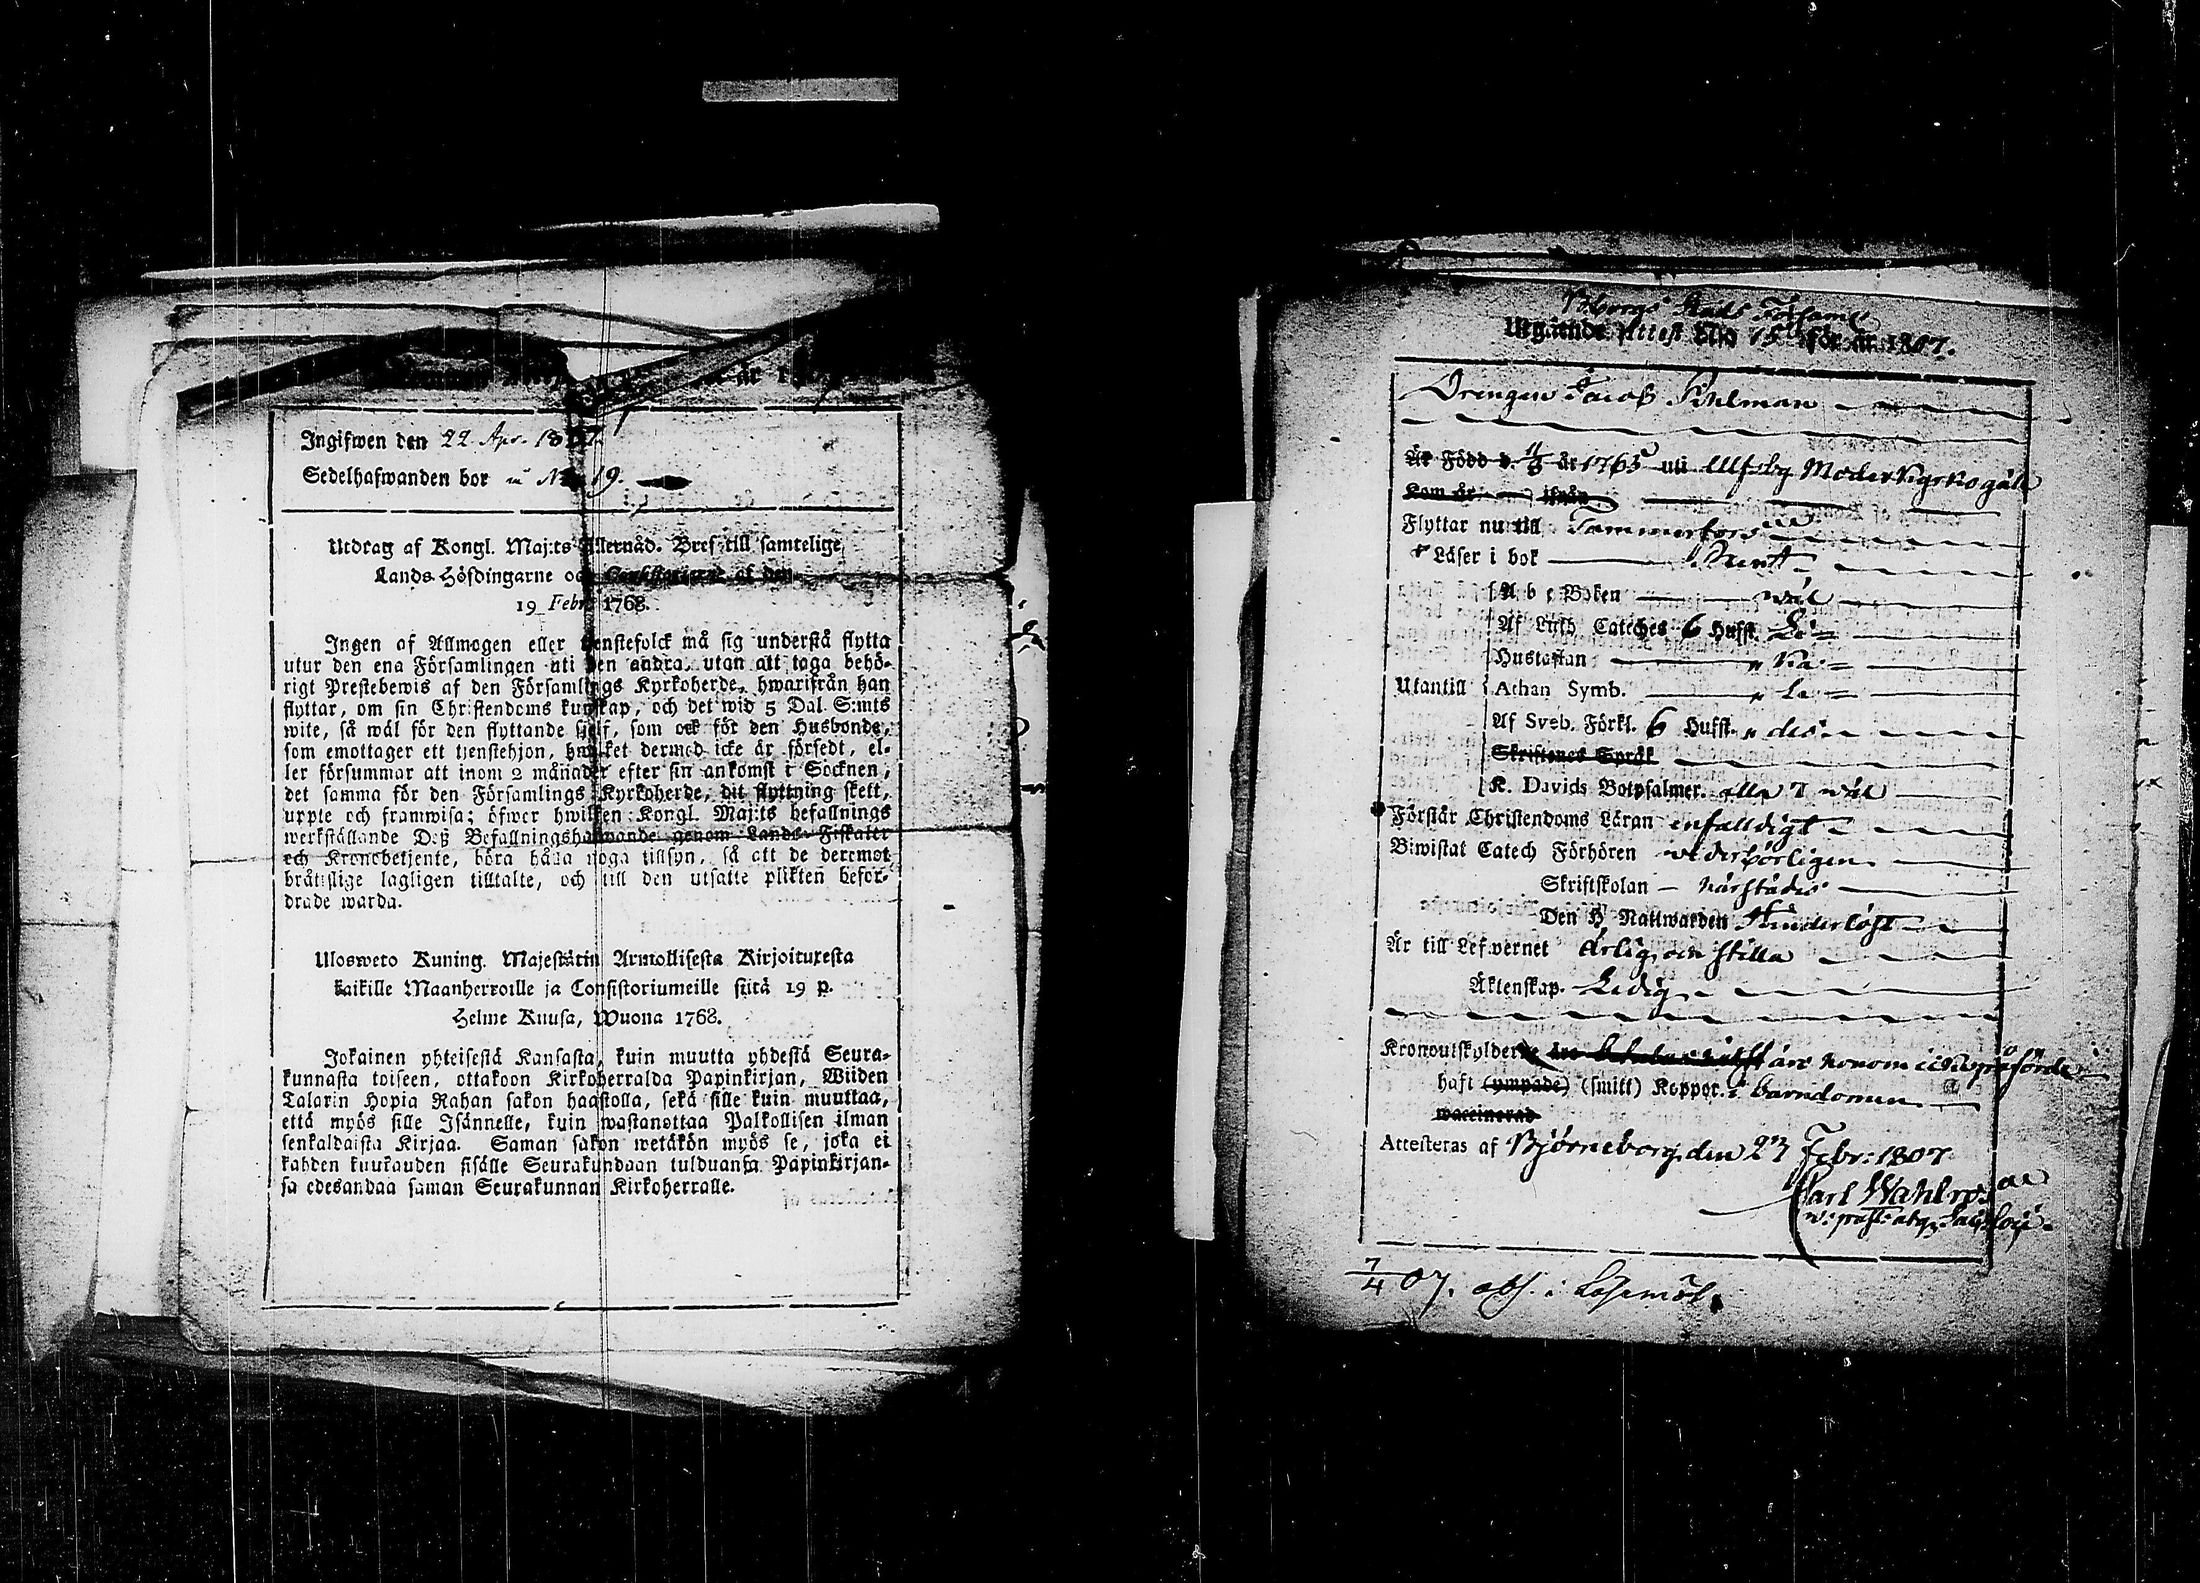 år 1
Ingifwen den 22 Apr. 1807.
Sedelhafwanden bor i No 19.
Utdrag af Kongl. Maj:ts Allernåd. Bref till samtelige
Lands Höfdingarne och Consistorierne af den
19 Febr. 1768.
Ingen af Allmogen eller tjenstefolck må sig understå flytta
utur den ena Församlingen uti den andra, utan att taga behö-
rigt Prestebewis af den Församlings Kyrkoherde, hwarifrån han
flyttar, om sin Christendoms kunskap, och det wid 5 Dal. S:mts
wite, så wäl för den flyttande sjelf, som ock för den Husbonde,
som emottager ett tjenstehjon, hwilket dermed icke är försedt, el-
ler försummar att inom 2 månader efter sin ankomst i Socknen,
det samma för den Församlings Kyrkoherde, dit flyttning skett,
uppte och framwisa; öfwer hwilken Kongl. Maj:ts befallnings
werkställande Deß Befallningshafwande genom Lands Fiskaler
och Kronobetjente, böra hålla noga tillsyn, så att de deremot
bråtslige lagligen tilltalte, och till den utsatte plikten befor-
drade warda.
Ulosweto Kuning. Majestätin Armollisesta Kirjoituxesta
kaikille Maanherroille ja Consistoriumeille siitä 19 p.
Helme Kuusa, Wuona 1768.
Jokainen yhteisestä Kansasta, kuin muutta yhdestä Seura-
kunnasta toiseen, ottakoon Kirkoherralda Papinkirjan, Wiiden
Talarin Hopia Rahan sakon haastolla, sekä sille kuin muuttaa,
että myös sille Isännelle, kuin wastanottaa Palkollisen ilman
senkaldaista Kirjaa. Saman sakon wetäkön myös se, joka ei
kahden kuukauden sisälle Seurakundaan tulduansa Papinkirjan-
sa edesandaa saman Seurakunnan Kirkoherralle.
Bborgs Stads Församl
Utgående Attest No 15 för år 1807.
Drengen Jacob Sihlman
Är Född d. 11/8 år 1765 uti Ulfsby Moderkyrkogäll
Kom år ifrån
Flyttar nu till Tammerfors
Läser i bok Rent
A b c Boken wäl
Af Luth Catechés 6 Hufst. Lä
Hustaflan
Utantill Athan Symb.
Af Sveb. Förkl. 6 Hufst. des
Skriftenes Språk
K. Davids Botpsalmer. alla 7 wäl
Förstår Christendoms Läran enfalldigt
Biwistat Catech Förhören wederbörligen
Skriftskolan härstädes
Den H Nattwarden Hinderlöst
Är till Lefwernet Ärlig och stilla
Äktenskap. Ledig
Kronoutskylderne äro honom icke påförde
haft (ympade) (smitt) Koppor. i barndomen
waccinerad
Attesteras af Björneborg den 27 Febr: 1807
Carl Wahlroos
7/4 07.